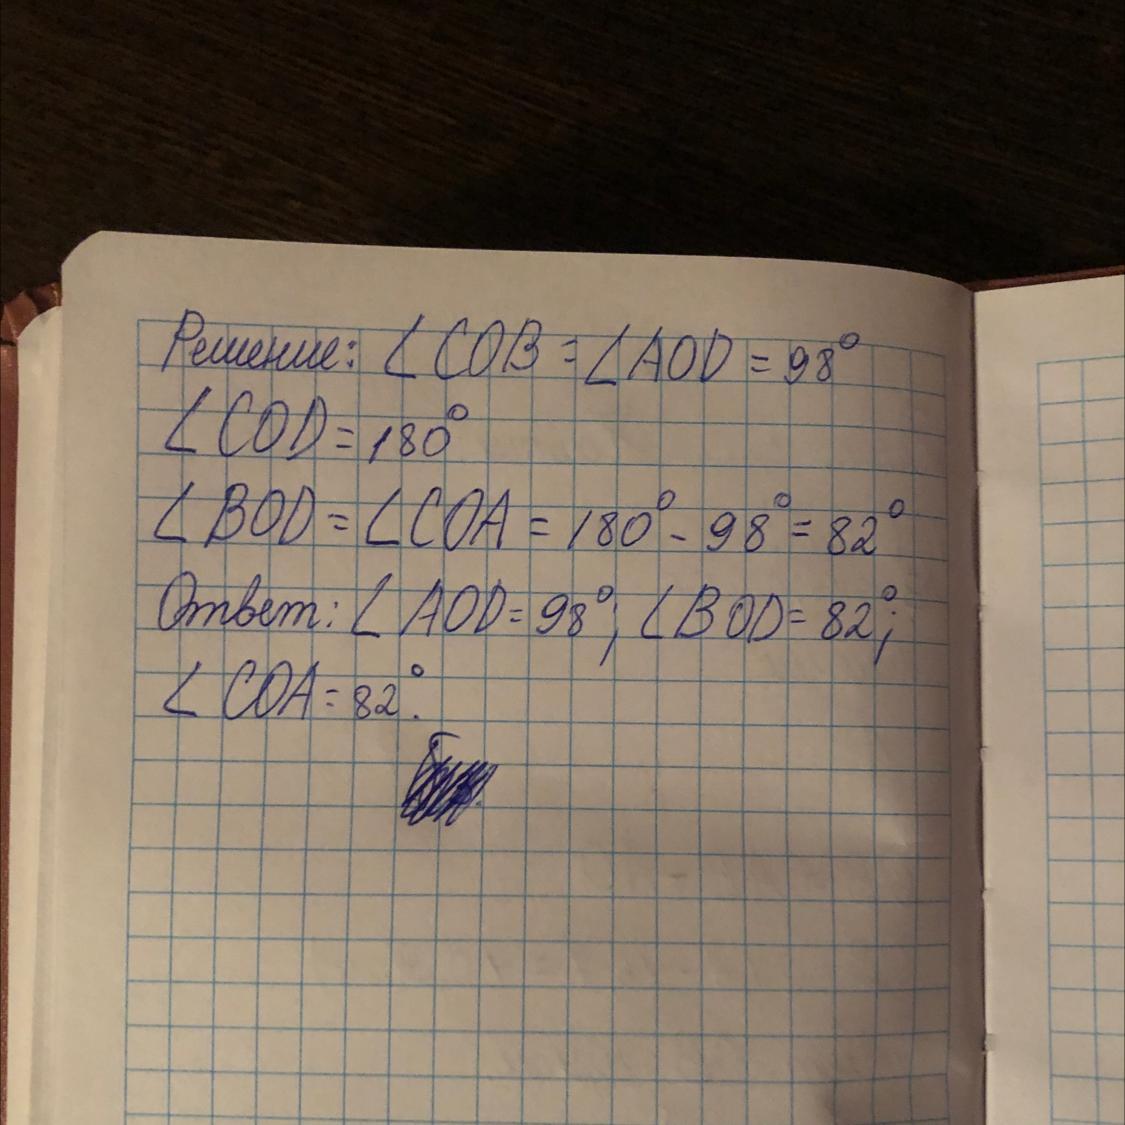 Решение: ∠COB = ∠AOD = 98°
∠COD = 180°
∠BOD = ∠COA = 180° - 98° = 82°
Ответ: ∠AOD = 98°; ∠BOD = 82°;
∠COA = 82°.